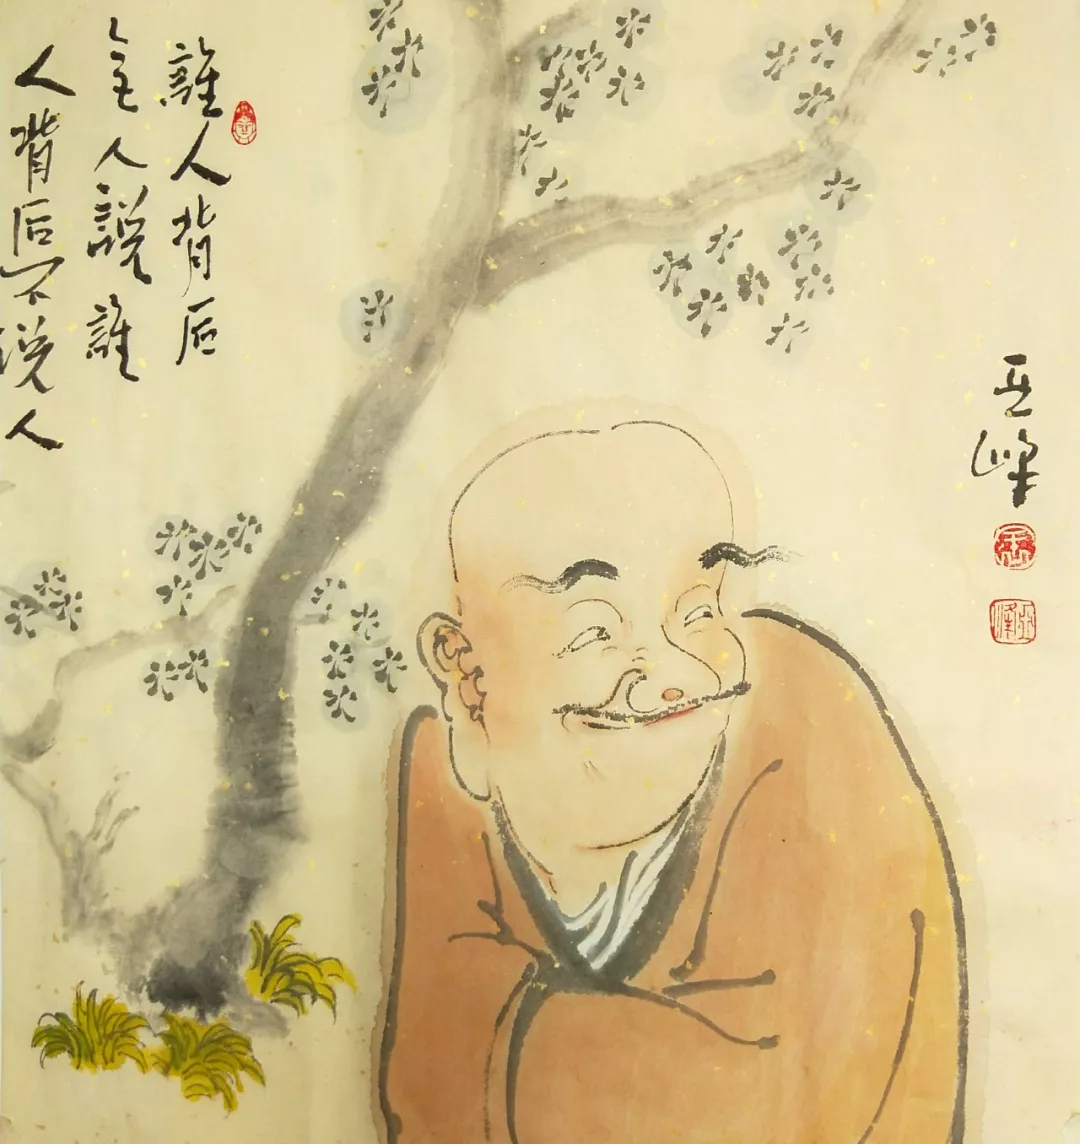 誰人背后
无人說誰
人背后不说人
亚峰